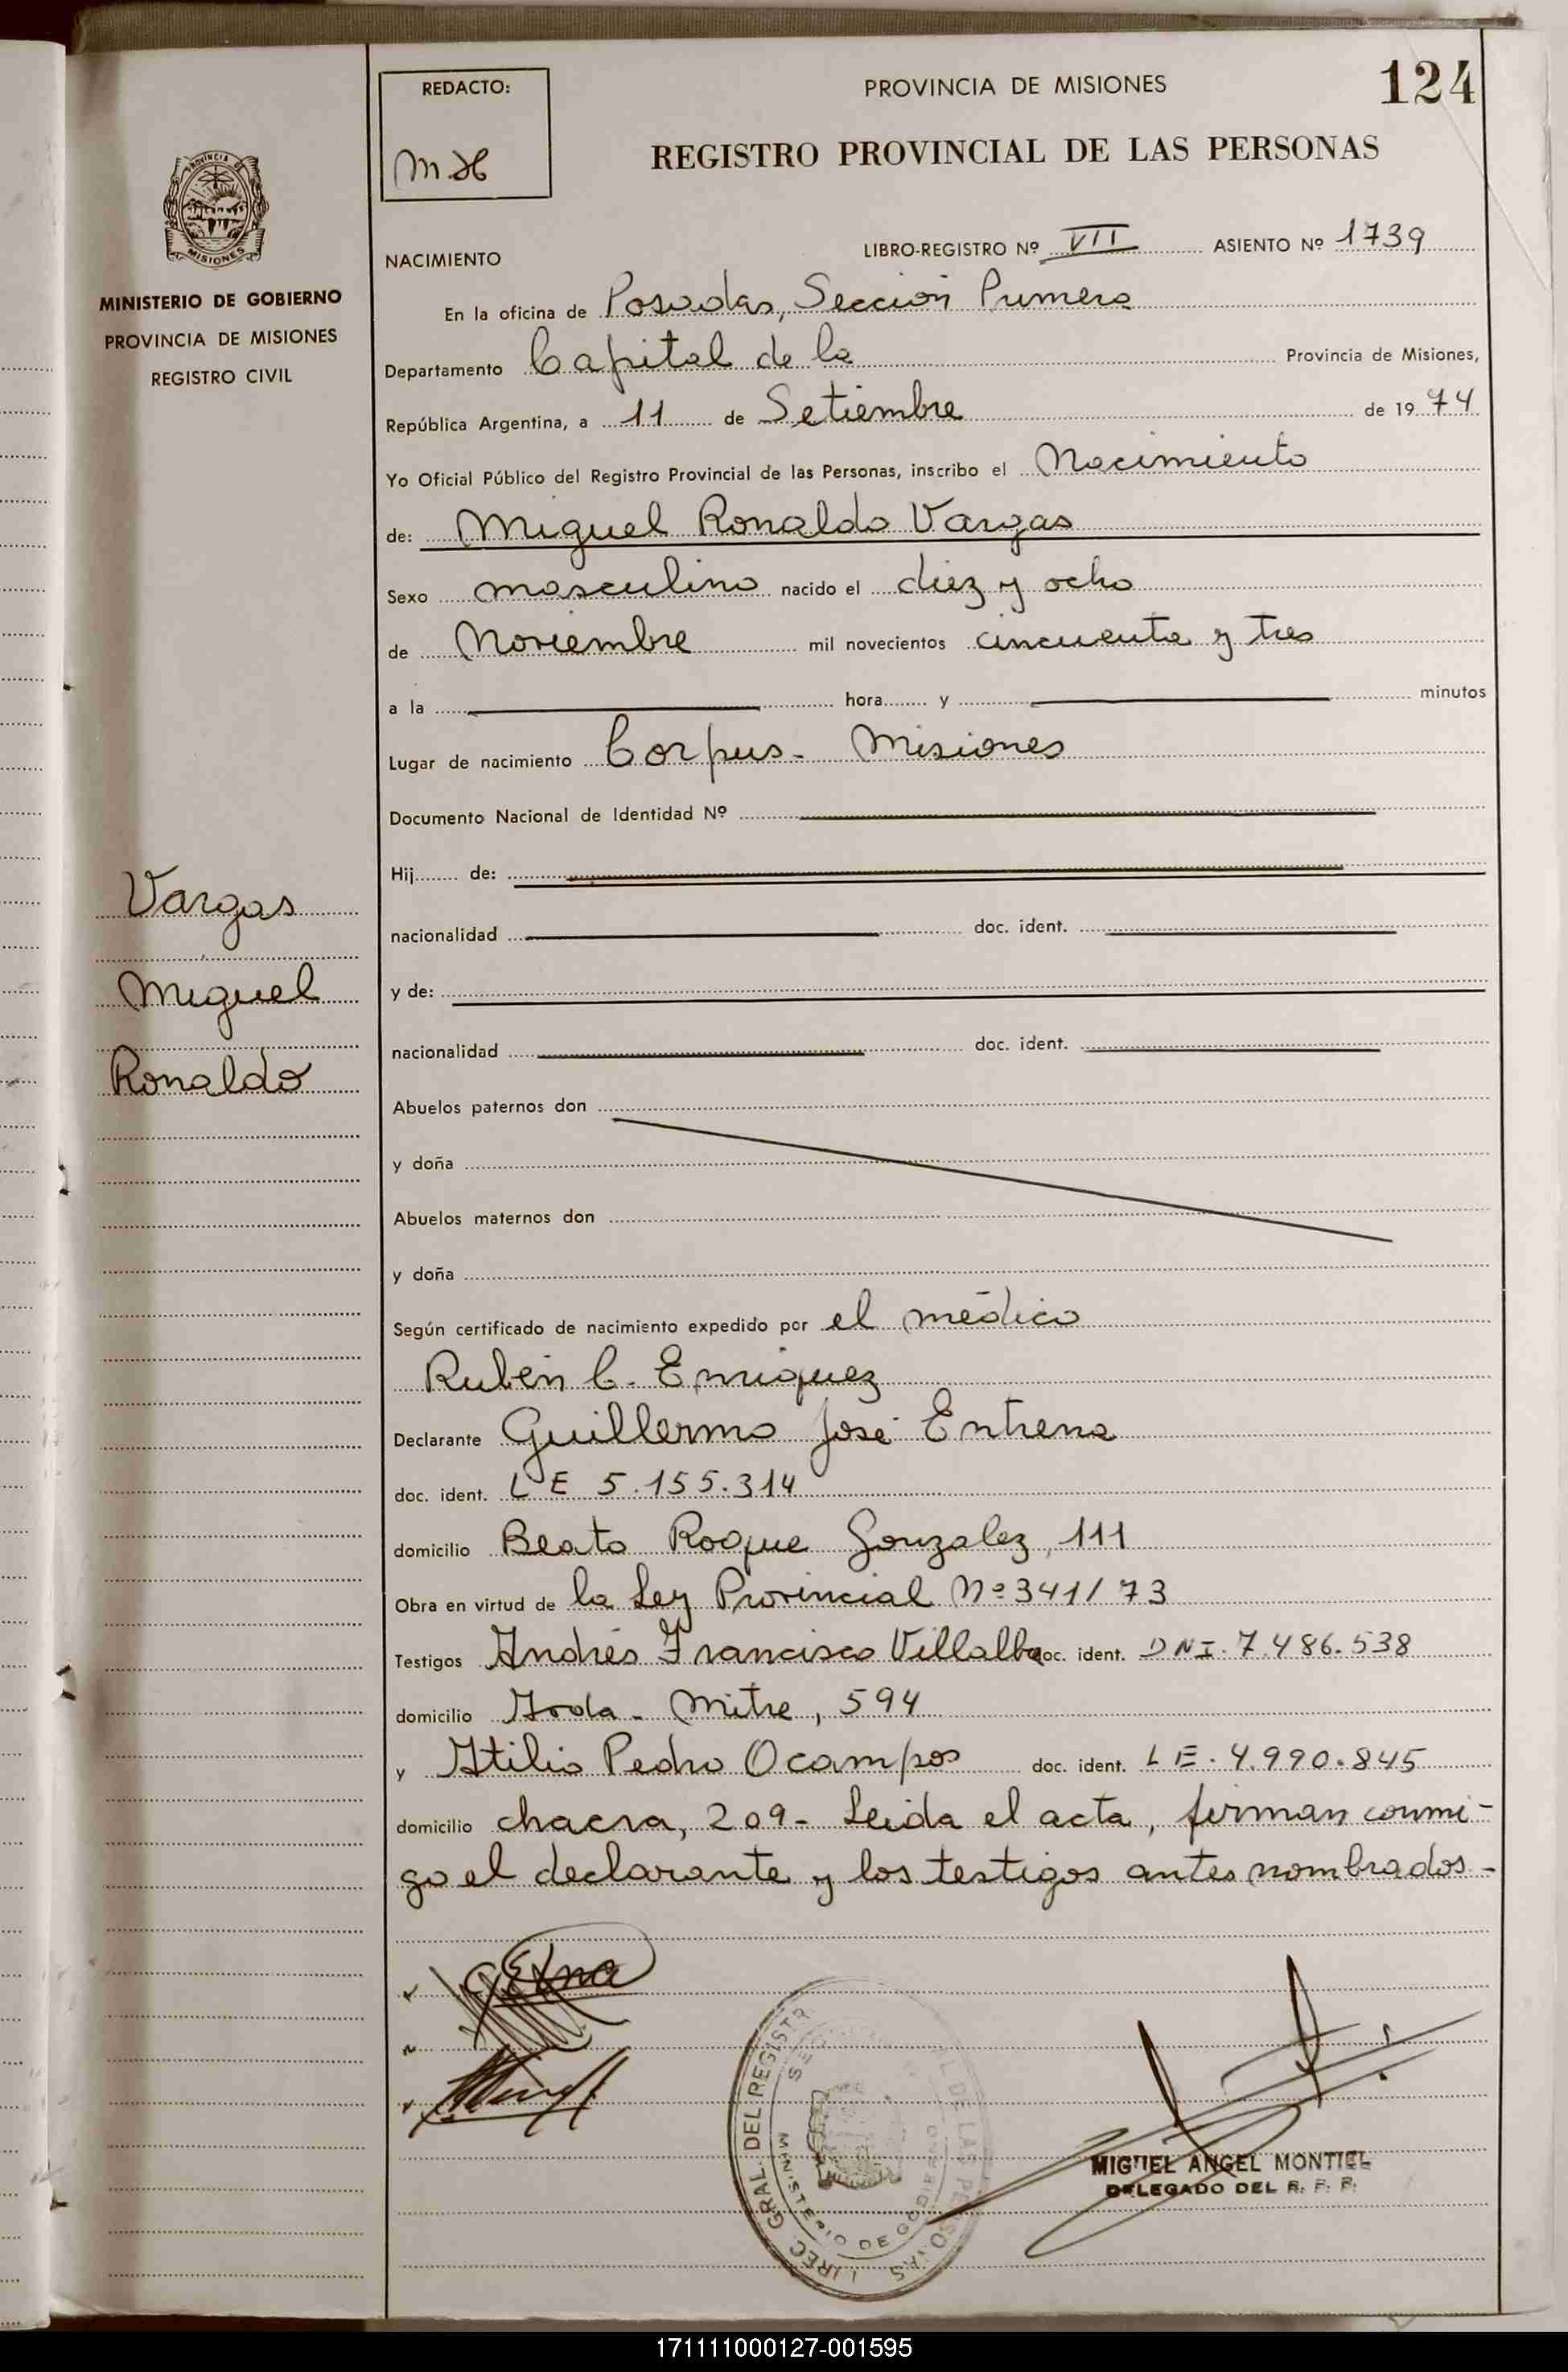 124
REDACTO:
M H
PROVINCIA DE MISIONES
REGISTRO PROVINCIAL DE LAS PERSONAS
PROVINCIA DE
MISIONES
MINISTERIO DE GOBIERNO
PROVINCIA DE MISIONES
REGISTRO CIVIL
Vargas
Miguel
Ronaldo
NACIMIENTO
LIBRO-REGISTRO Nº VII ASIENTO Nº 1739
En la oficina de Posadas, Sección Primera
Departamento Capital de la Provincia de Misiones,
República Argentina, a 11 de Setiembre de 1974
Yo Oficial Público del Registro Provincial de las Personas, inscribo el Nacimiento
de: Miguel Ronaldo Vargas
Sexo masculino nacido el diez y ocho
de Noviembre mil novecientos cincuenta y tres
a la hora y minutos
Lugar de nacimiento Corpus - Misiones
Documento Nacional de Identidad Nº
Hij de:
nacionalidad doc. ident.
y de:
nacionalidad doc. ident.
Abuelos paternos don
y doña
Abuelos maternos don
y doña
Según certificado de nacimiento expedido por el médico
Rubén C. Enriquez
Declarante Guillermo José Entrena
doc. ident. L E 5.155.314
domicilio Beato Roque Gonzalez, 111
Obra en virtud de la Ley Provincial Nº 341/73
Testigos Andrés Francisco Villalba doc. ident. DNI. 7.486.538
domicilio Avda - Mitre, 594
y Atilio Pedro Ocampos doc. ident. L E. 4.990.845
domicilio chacra, 209 - Leida el acta, firman conmi-
go el declarante y los testigos antes nombrados. -
DIREC. GRAL. DEL REGISTR L DE LAS PERSONAS
MINISTERIO DE GOBIERNO
MIGUEL ANGEL MONTIEL
DELEGADO DEL R. P. P.
171111000127-001595